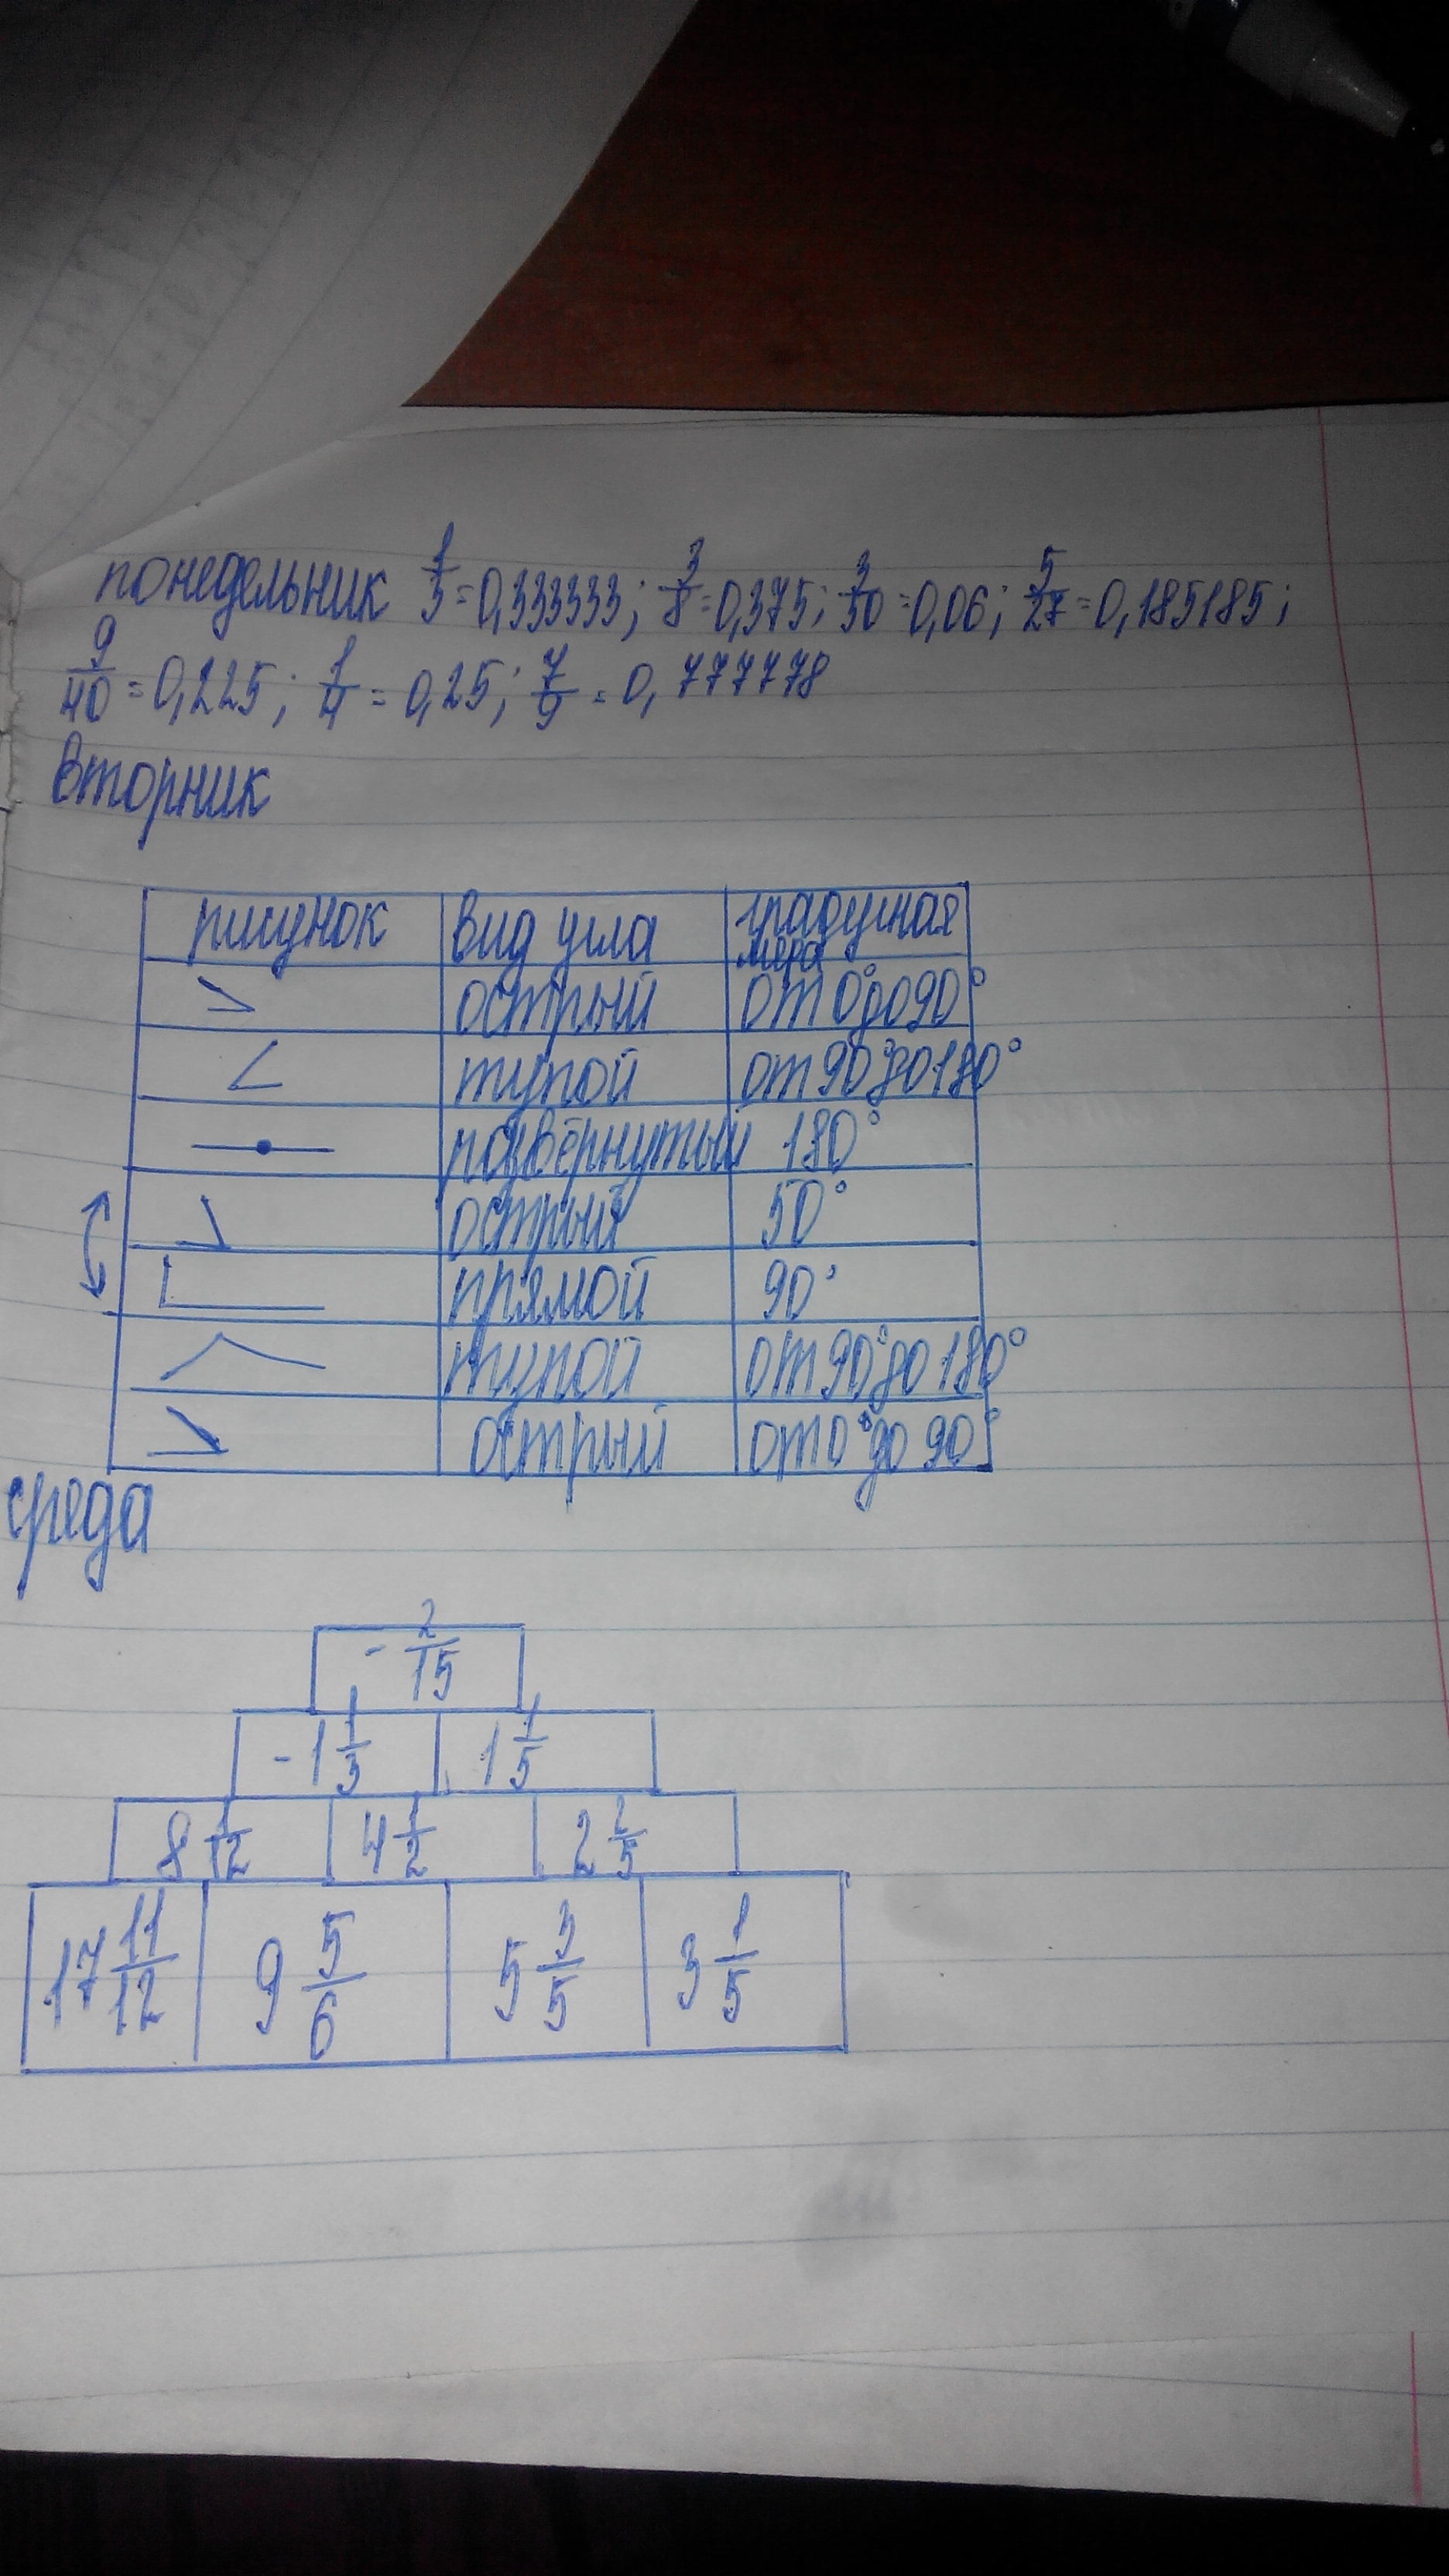 понедельник 1/3=0,333333; 3/8=0,375; 3/50=0,06; 5/27=0,185185;
9/40=0,225; 1/4=0,25; 7/9=0,777778
вторник
рисунок вид угла градусная мера
острый от 0° до 90°
тупой от 90° до 180°
развёрнутый 180°
острый 50°
прямой 90°
тупой от 90° до 180°
острый от 0° до 90°
среда
- 2/15
-1 1/3 1 1/5
8 1/12 4 1/2 2 2/5
17 11/12 9 5/6 5 3/5 3 1/5